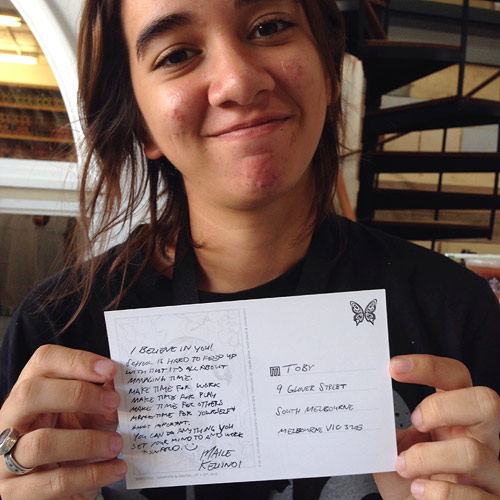 I BELIEVE IN YOU!
SCHOOL IS HARD TO KEEP UP
WITH BUT IT'S ALL ABOUT
MANAGING TIME.
MAKE TIME FOR WORK
MAKE TIME FOR PLAY
MAKE TIME FOR OTHERS
MAKE TIME FOR YOURSELF
MOST IMPORTANT.
YOU CAN DO ANYTHING YOU
SET YOUR MIND TO AND WORK
MAILE
TOBY
9 GLOVER STREET
SOUTH MELBOURNE
MELBOURNE VIC 3205